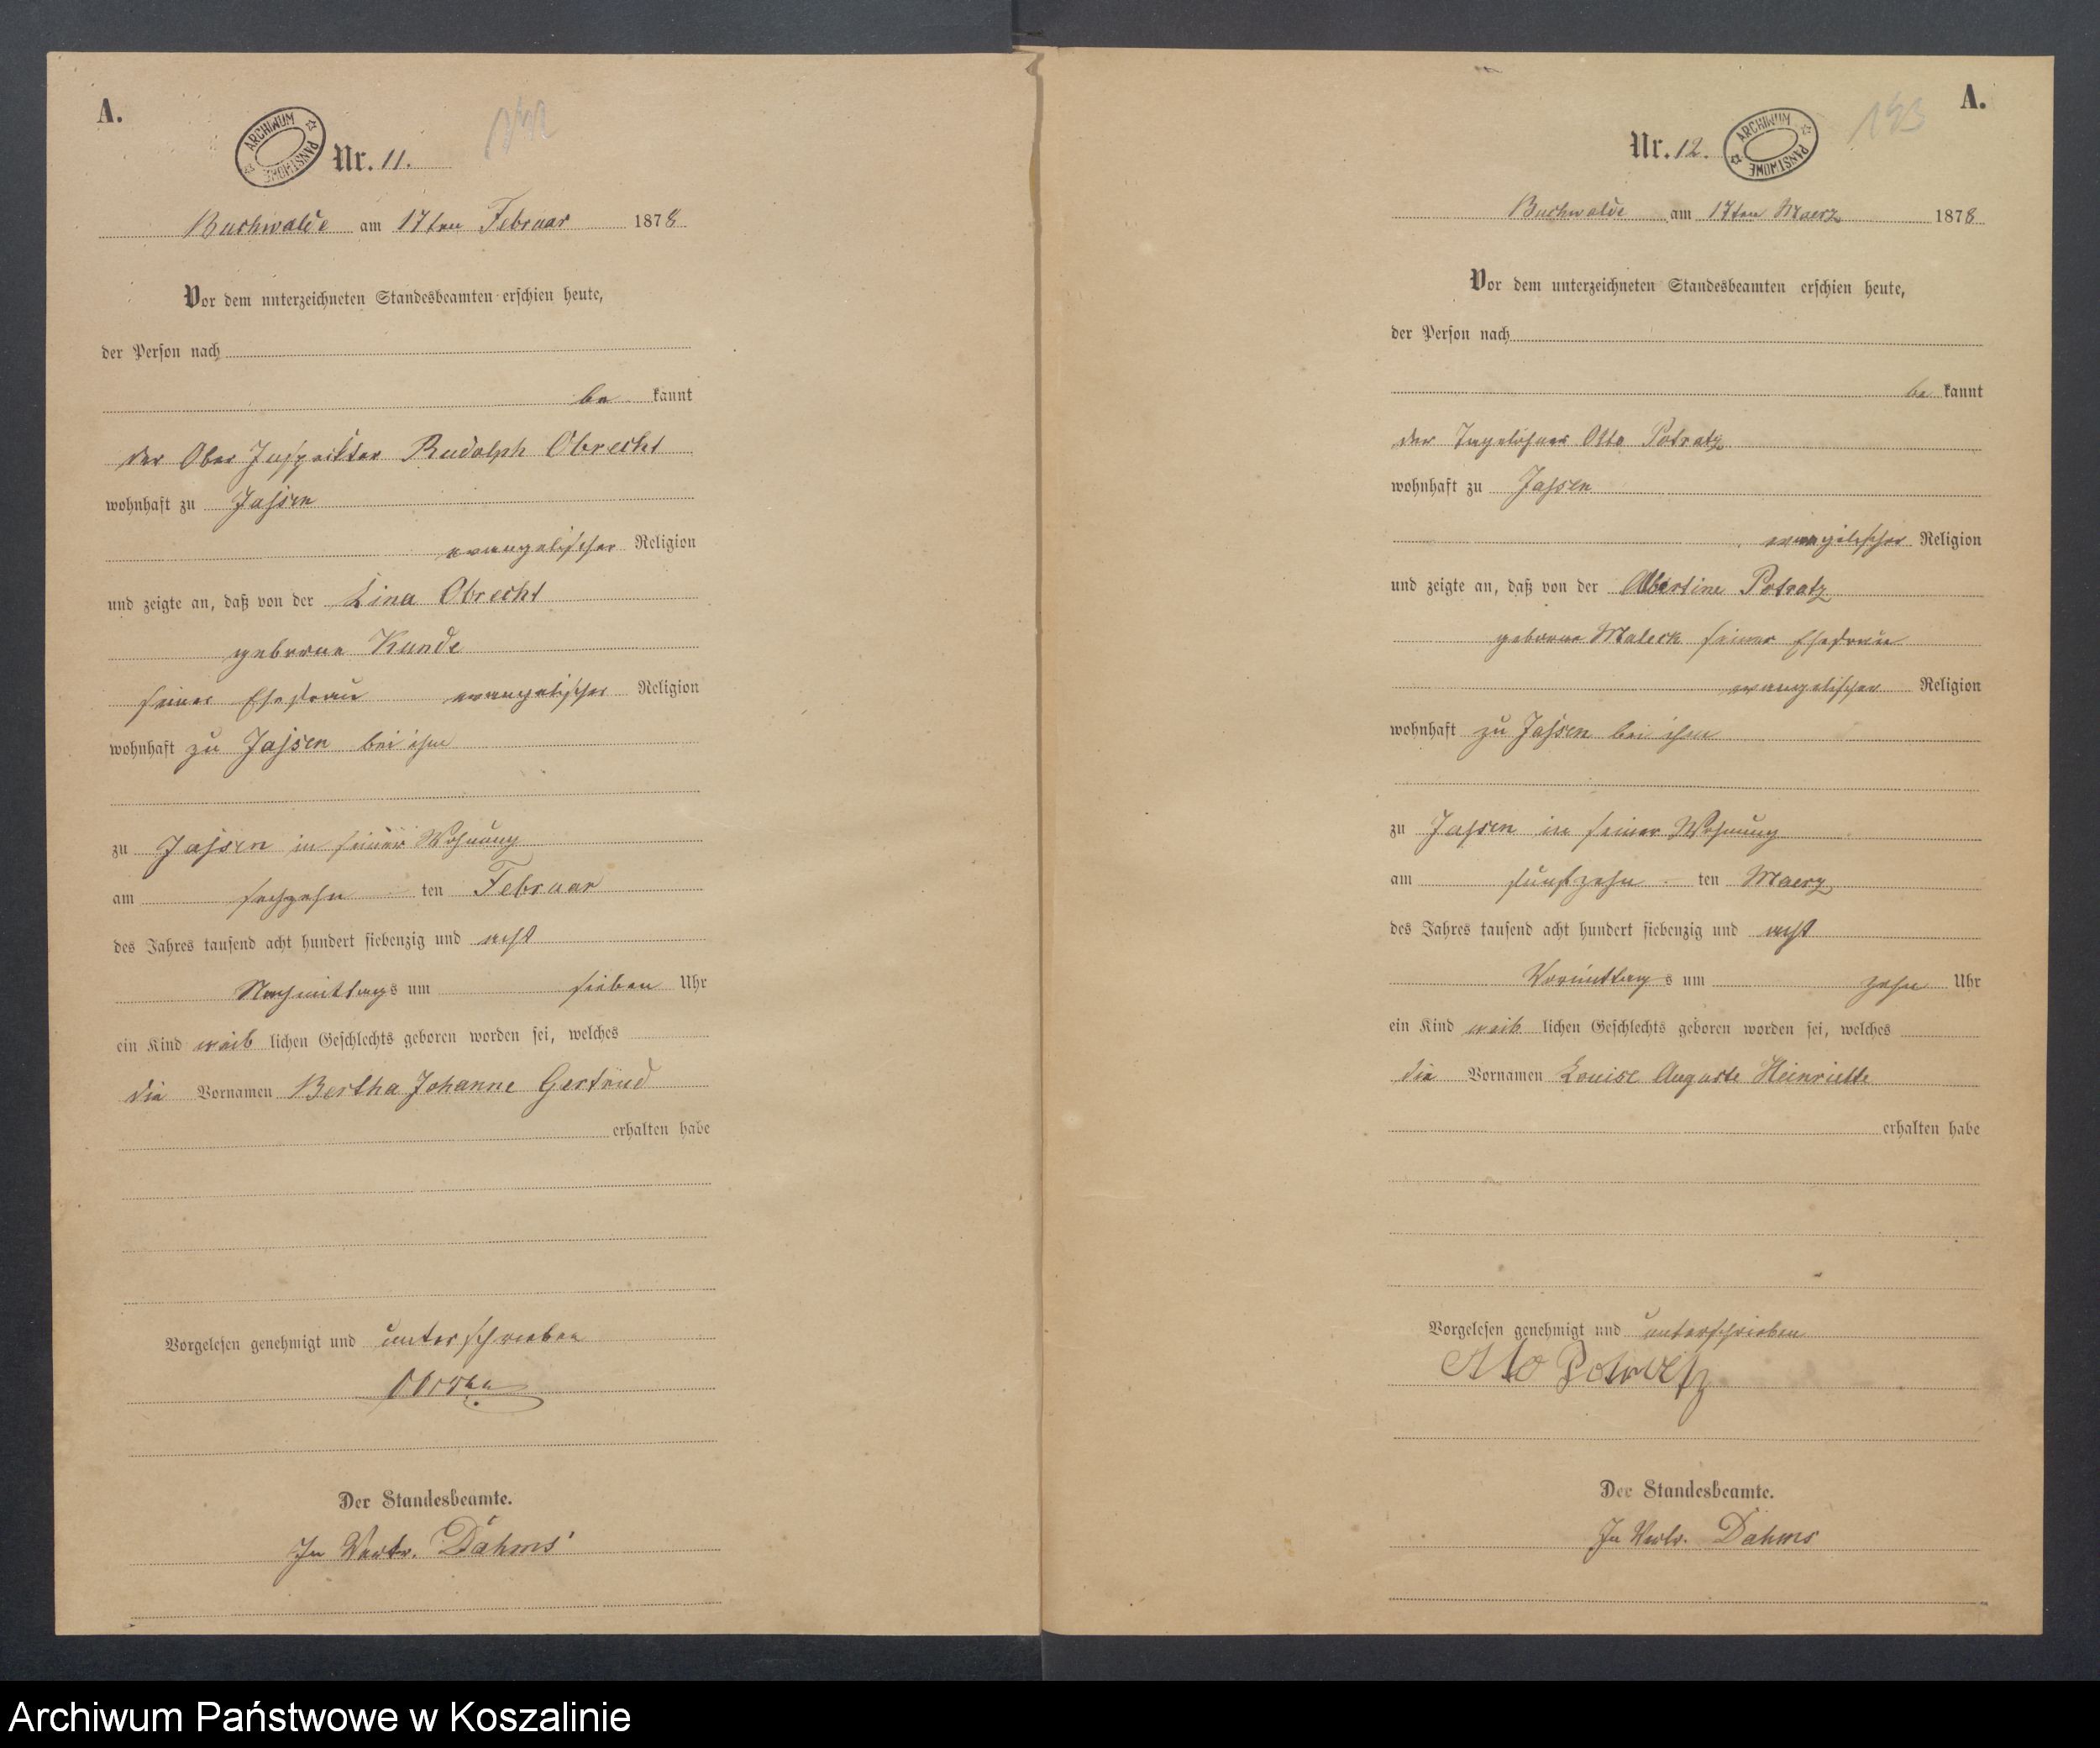 A.
ARCHIWUM PAŃSTWOWE
Nr. 11.
Buchwalde am 17ten Februar 1878
Vor dem unterzeichneten Standesbeamten erschien heute,
der Person nach
be kannt
der Ober Inspecktor Rudolph Obrecht
wohnhaft zu Jassen
evangelischer Religion
und zeigte an, daß von der Lina Obrecht
geborne Kunde
seiner Ehefrau evangelischer Religion
wohnhaft zu Jassen bei ihm
zu Jassen in seiner Wohnung
am sechzehn ten Februar
des Jahres tausend acht hundert siebenzig und acht
Nachmittags um sieben Uhr
ein Kind weib lichen Geschlechts geboren worden sei, welches
die Vornamen Bertha Johanne Gertrud
erhalten habe
Vorgelesen genehmigt und unterschrieben
Obrecht
Der Standesbeamte.
In Vertr. Dahms
A.
Nr. 12.
ARCHIWUM PAŃSTWOWE
143
Buchwalde am 17ten Maerz 1878
Vor dem unterzeichneten Standesbeamten erschien heute,
der Person nach
be kannt
der Tagelöhner Otto Potratz
wohnhaft zu Jassen
evangelischer Religion
und zeigte an, daß von der Albertine Potratz
geborne Maleck seiner Ehefrau
evangelischer Religion
wohnhaft zu Jassen bei ihm
zu Jassen in seiner Wohnung
am fünfzehn ten Maerz
des Jahres tausend acht hundert siebenzig und acht
Vormittag s um zehn Uhr
ein Kind weib lichen Geschlechts geboren worden sei, welches
die Vornamen Louise Auguste Heinriette
erhalten habe
Vorgelesen genehmigt und unterschrieben
Otto Potratz
Der Standesbeamte.
In Vertr. Dahms
Archiwum Państwowe w Koszalinie